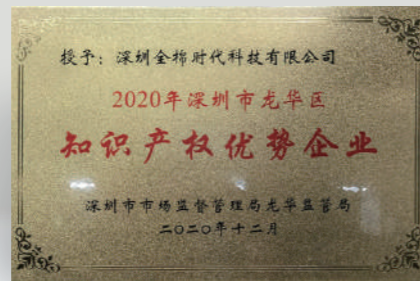 授予：深圳全棉时代科技有限公司
2020年深圳市龙华区
知识产权优势企业
深圳市市场监督管理局龙华监管局
二〇二〇年十二月